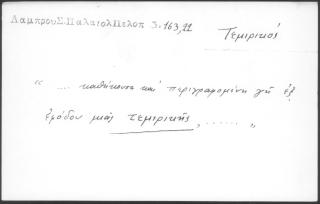 Λαμπρου Σ.Παλαιολ Πελοπ 3.163,22
Τεμιρικός
" .... καθήκουσα καὶ περιγραφομένη γῆ ἐξ
ἐφόδου μιᾶς τεμιρικῆς, ...... "